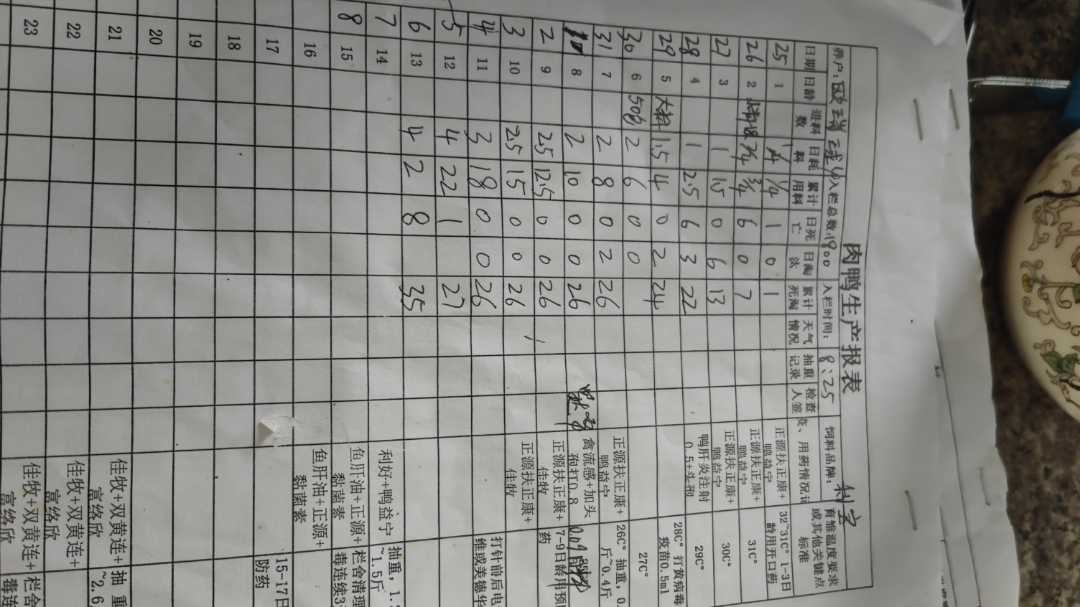 肉鸭生产报表
养户: 入栏总数:1900 入栏时间: 8:25 饲料品牌:
日期 日龄 进料数 日耗料 累计用料 日死亡 日淘汰 累计死淘 天气情况 抽重记录 检查人签 用药情况 育雏温度要求或其他关键点标准
25 1 1/4 1/4 1 0 1 正源扶正康+鸭益宁 32~31C° 1-3日龄用开口药
26 2 3/4 6 0 7 正源扶正康+鸭益宁 31C°
27 3 1 1.5 0 6 13 正源扶正康+鸭益宁 30C°
28 4 1 2.5 6 3 22 鸭肝炎注射0.5+头孢 29C°
29 5 1.5 4 0 2 24 28C° 打黄病毒疫苗0.5ml
30 6 50包 2 6 0 0 27C°
31 7 2 8 0 2 26 正源扶正康+鸭益宁 26C° 抽重,0.~0.4斤
8 2 10 0 0 26 禽流感+加头孢打0.8
2 9 25 12.5 0 0 26 正源扶正康+佳牧 7-9日龄用预药
3 10 25 15 0 0 26 正源扶正康+佳牧
4 11 3 18 0 0 26 打针前后电维或美德华
5 12 4 22 1 27
6 13 4 2 8 35
7 14 利好+鸭益宁 抽重,1.~1.5斤
8 15 鱼肝油+正源+黏菌素 栏舍清理毒连续3
16 鱼肝油+正源+黏菌素
17 15-17日防药
18
19
20
21 佳牧+双黄连+富络欣 抽重~2.6
22 佳牧+双黄连+富络欣
23 佳牧+双黄连+富络欣 栏舍毒连